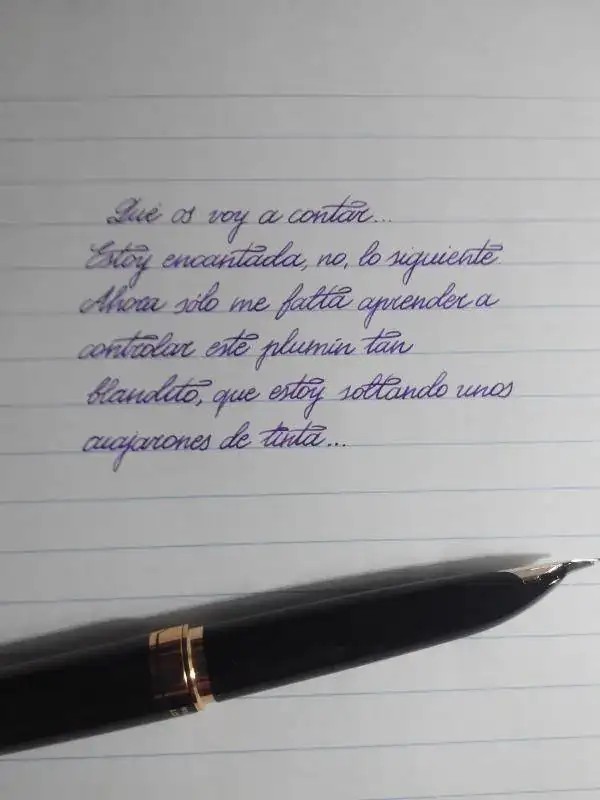 Qué os voy a contar...
Estoy encantada, no, lo siguiente.
Ahora sólo me falta aprender a
controlar este plumín tan
blandito, que estoy soltando unos
cuajarones de tinta...